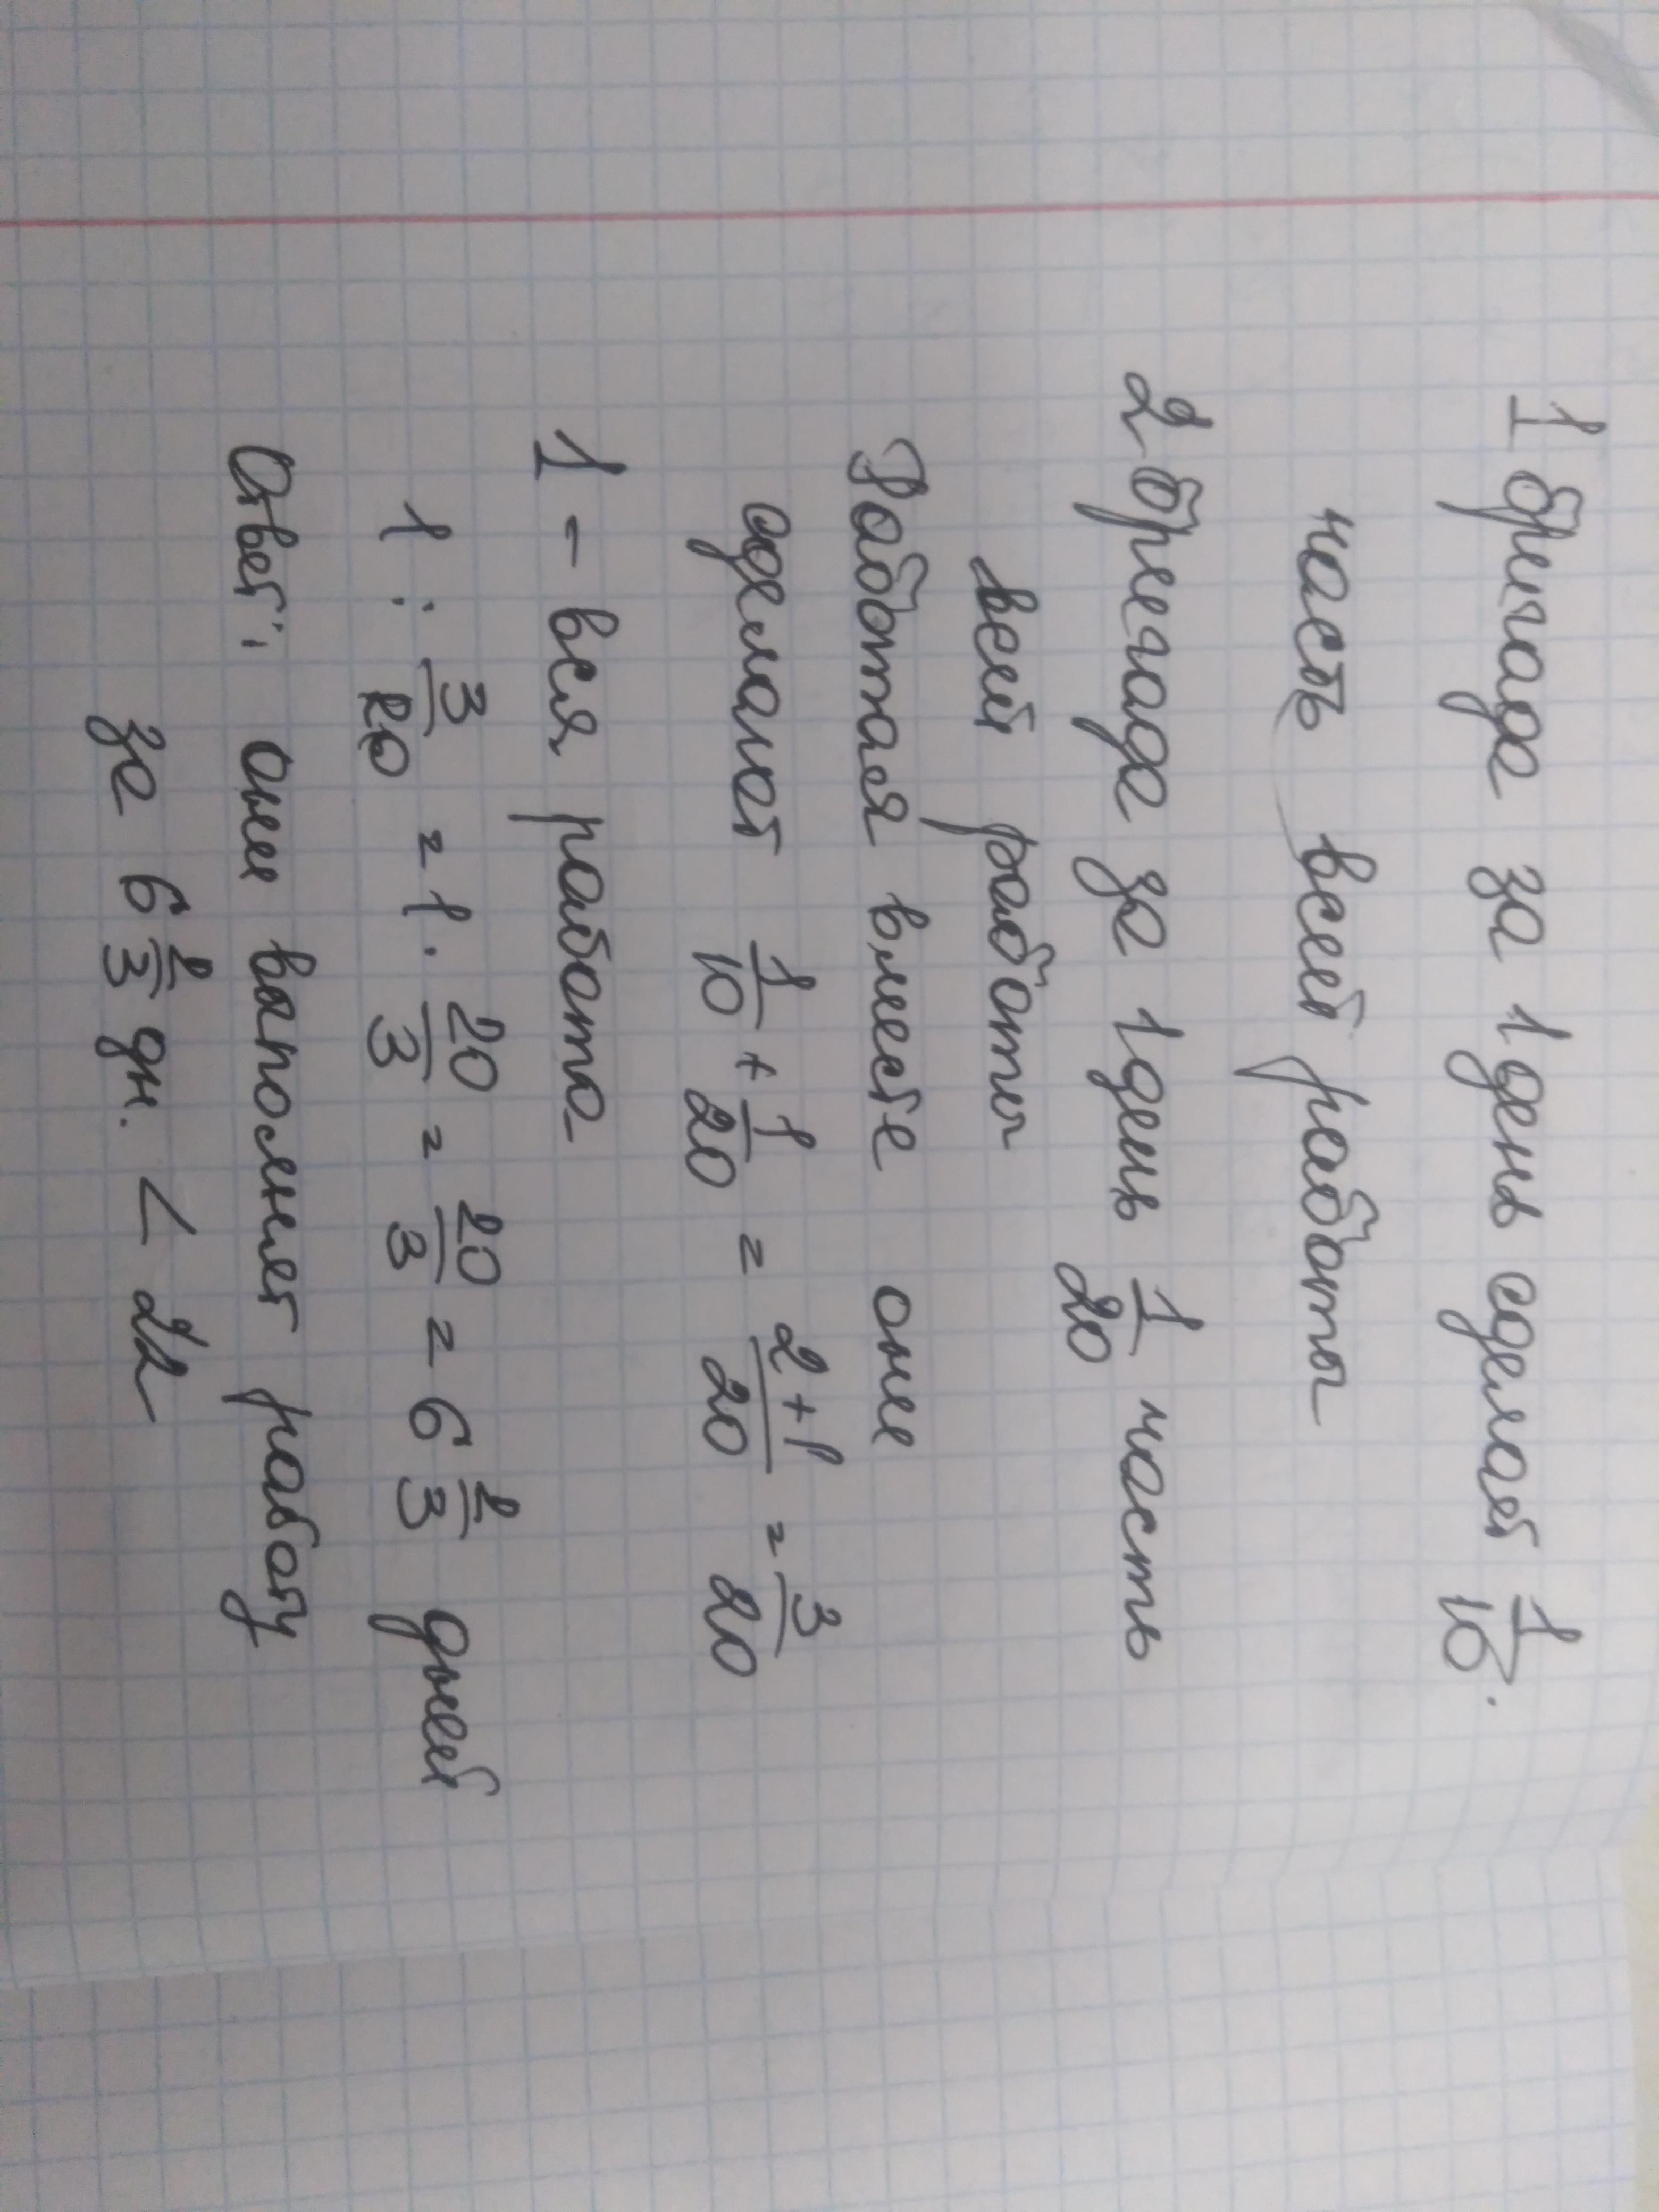 1 бригада за 1 день сделает 1/10.
часть всей работы
2 бригада за 1 день 1/20 часть
всей работы
Работая вместе они
сделают 1/10 + 1/20 = 2+1/20 = 3/20
1 - вся работа
1 : 3/20 = 1 · 20/3 = 20/3 = 6 2/3 дней
Ответ: они выполнят работу
за 6 2/3 дн. < 22